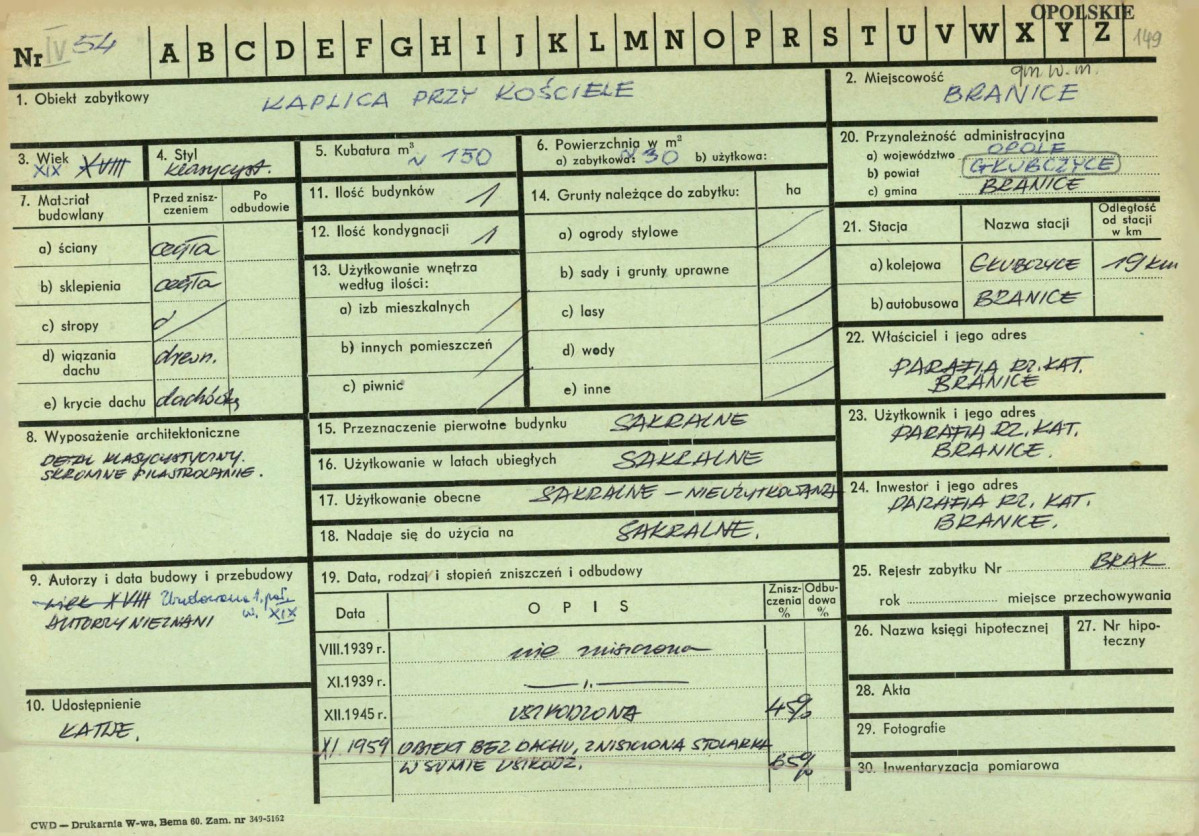 OPOLSKIE
Nr IV 54 A B C D E F G H I J K L M N O P R S T U V W X Y Z 149
1. Obiekt zabytkowy KAPLICA PRZY KOŚCIELE
2. Miejscowość gm. w. m.
BRANICE
3. Wiek
XIX XVIII
4. Styl
klasycyst.
5. Kubatura m³ ~ 150
6. Powierzchnia w m²
a) zabytkowa: ~ 30 b) użytkowa:
20. Przynależność administracyjna
a) województwo OPOLE
b) powiat GŁUBCZYCE
c) gmina BRANICE
7. Materiał budowlany
Przed zniszczeniem
Po odbudowie
a) ściany cegła
b) sklepienia cegła
c) stropy
d) wiązania dachu drewn.
e) krycie dachu dachówką
11. Ilość budynków 1
12. Ilość kondygnacji 1
13. Użytkowanie wnętrza
według ilości:
a) izb mieszkalnych
b) innych pomieszczeń
c) piwnic
14. Grunty należące do zabytku: ha
a) ogrody stylowe
b) sady i grunty uprawne
c) lasy
d) wody
e) inne
21. Stacja Nazwa stacji Odległość od stacji w km
a) kolejowa GŁUBCZYCE 19 km
b) autobusowa BRANICE
22. Właściciel i jego adres
PARAFIA RZ. KAT.
BRANICE
8. Wyposażenie architektoniczne
DETAL KLASYCYSTYCZNY.
SKROMNE PILASTROWANIE.
15. Przeznaczenie pierwotne budynku SAKRALNE
16. Użytkowanie w latach ubiegłych SAKRALNE
17. Użytkowanie obecne SAKRALNE – NIEUŻYTKOWANA
18. Nadaje się do użycia na SAKRALNE.
23. Użytkownik i jego adres
PARAFIA RZ. KAT.
BRANICE.
24. Inwestor i jego adres
PARAFIA RZ. KAT.
BRANICE.
9. Autorzy i data budowy i przebudowy
wiek XVIII Zbudowana 1. poł.
w. XIX
AUTORZY NIEZNANI
10. Udostępnienie
ŁATWE.
19. Data, rodzaj i stopień zniszczeń i odbudowy
Data OPIS Zniszczenia % Odbudowa %
VIII.1939 r. nie zniszczona
XI.1939 r. — „ —
XII.1945 r. USZKODZONA 45%
XI. 1959 OBIEKT BEZ DACHU, ZNISZCZONA STOLARKA
W SUMIE USZKODZ. 65%
25. Rejestr zabytku Nr BRAK
rok miejsce przechowywania
26. Nazwa księgi hipotecznej
27. Nr hipoteczny
28. Akta
29. Fotografie
30. Inwentaryzacja pomiarowa
CWD — Drukarnia W-wa, Bema 60. Zam. nr 349-5162